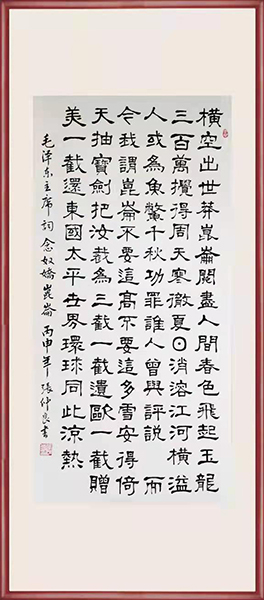 橫空出世莽崑崙閱盡人間春色飛起玉龍
三百萬攪得周天寒徹夏日消溶江河橫溢
人或為魚鱉千秋功罪誰人曾與評說 而
今我謂崑崙不要這高不要這多雪安得倚
天抽寶劍把汝裁為三截一截遺歐一截贈
美一截還東國太平世界環球同此涼熱
毛泽东主席詞 念奴嬌 崑崙 丙申年 張仲良書